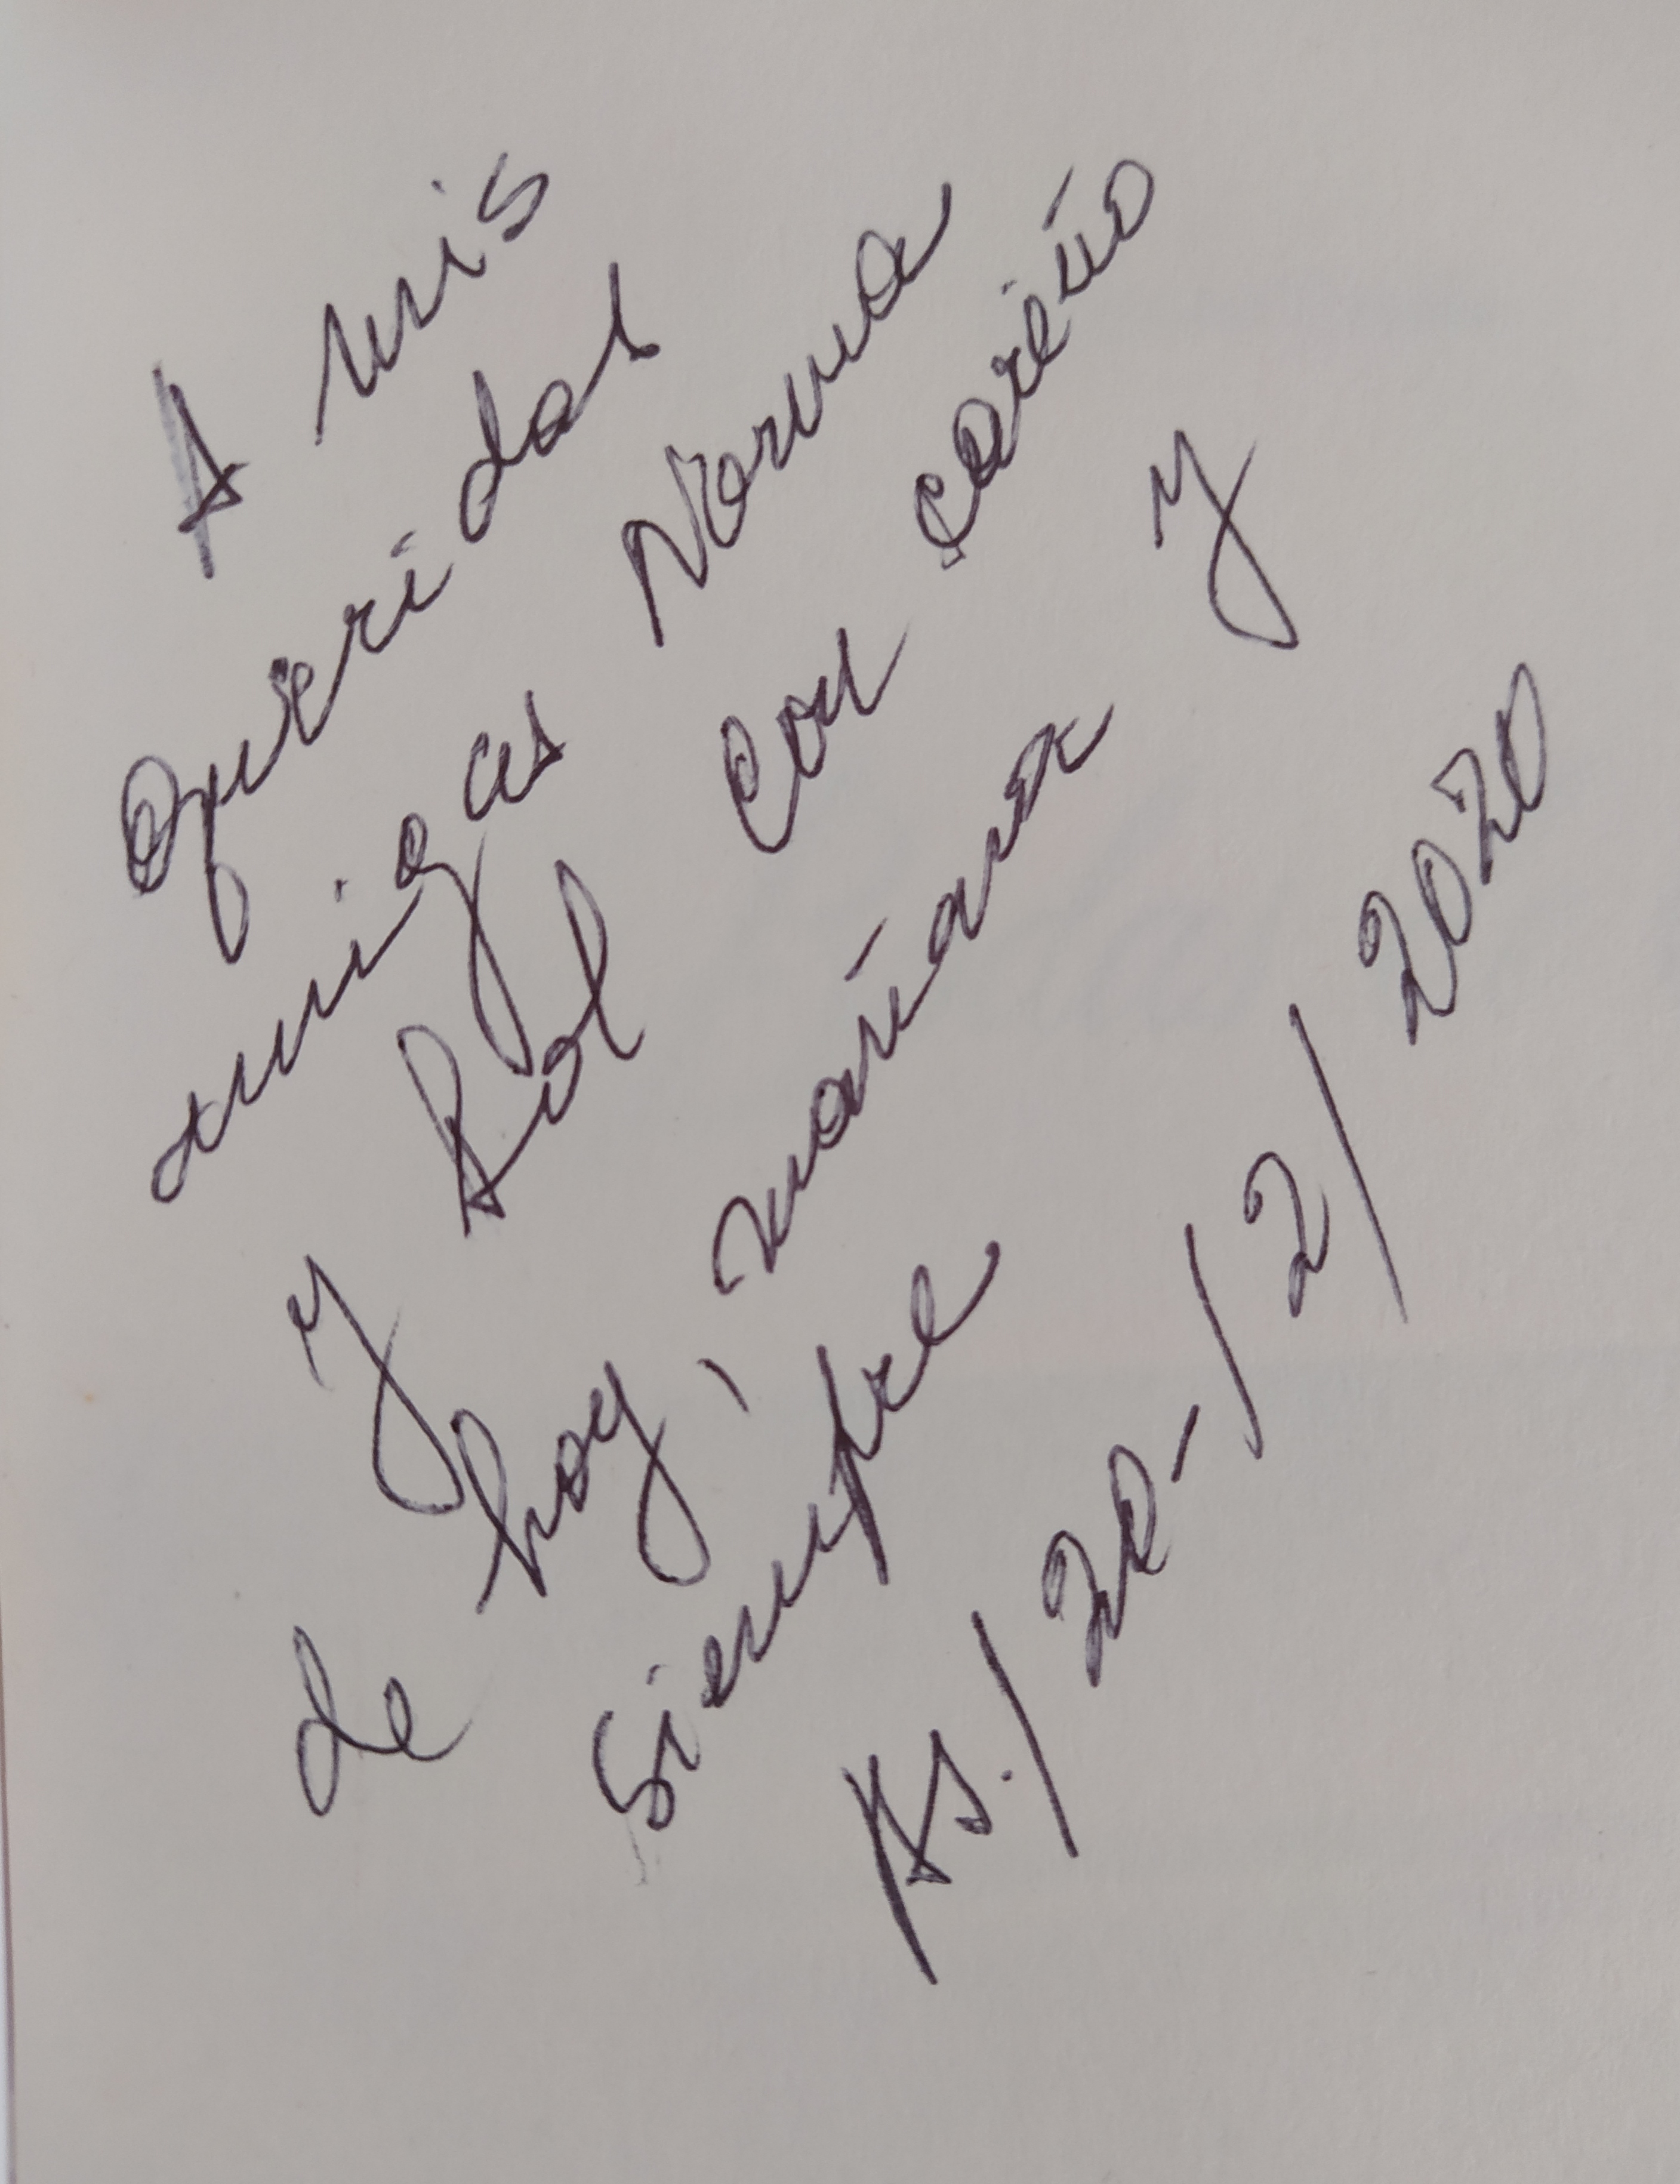 A mis
queridas
amigas Norma
y Sol con cariño
de hoy, mañana y
siempre
As./20-12/2020